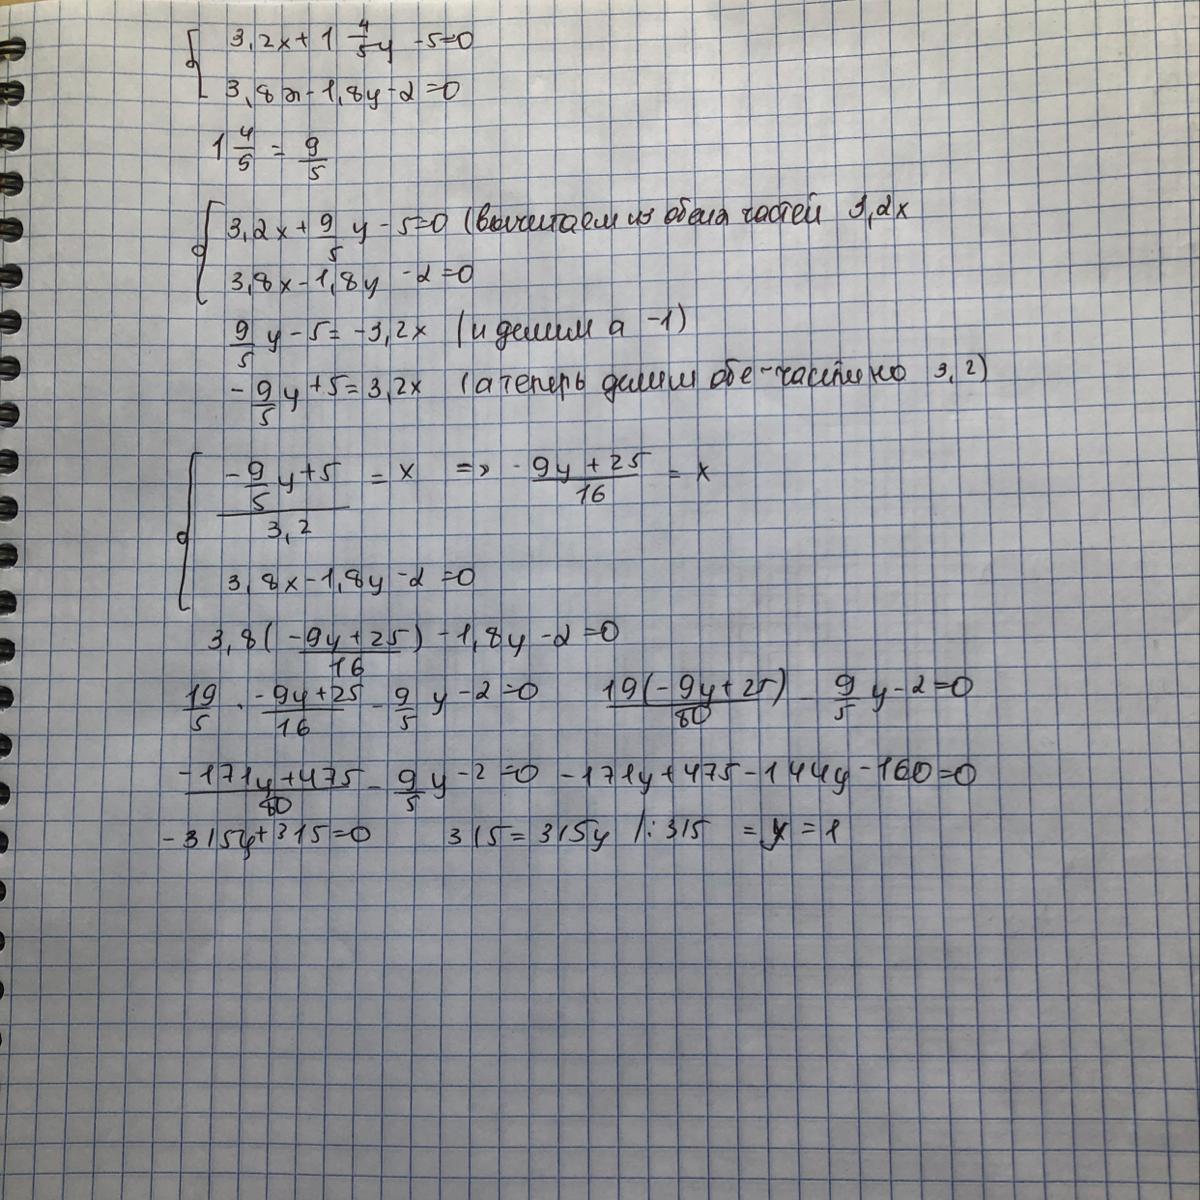 3,2x + 1 4/5 y - 5=0
3,8x - 1,8y - 2 = 0
1 4/5 = 9/5
3,2x + 9/5 y - 5=0 (вычитаем из обеих частей 3,2x
3,8x - 1,8y - 2 = 0
9/5 y - 5 = -3,2x (и делим а -1)
-9/5 y + 5 = 3,2x (а теперь делим обе части но 3,2)
(-9/5 y + 5)/3,2 = x => (-9y + 25)/16 = x
3,8x - 1,8y - 2 = 0
3,8( (-9y + 25)/16 ) - 1,8y - 2 = 0
19/5 · (-9y + 25)/16 - 9/5 y - 2 = 0 19(-9y + 25)/80 - 9/5 y - 2 = 0
(-171y + 475)/80 - 9/5 y - 2 = 0 -171y + 475 - 144y - 160 = 0
-315y + 315 = 0 315 = 315y |: 315 = y = 1